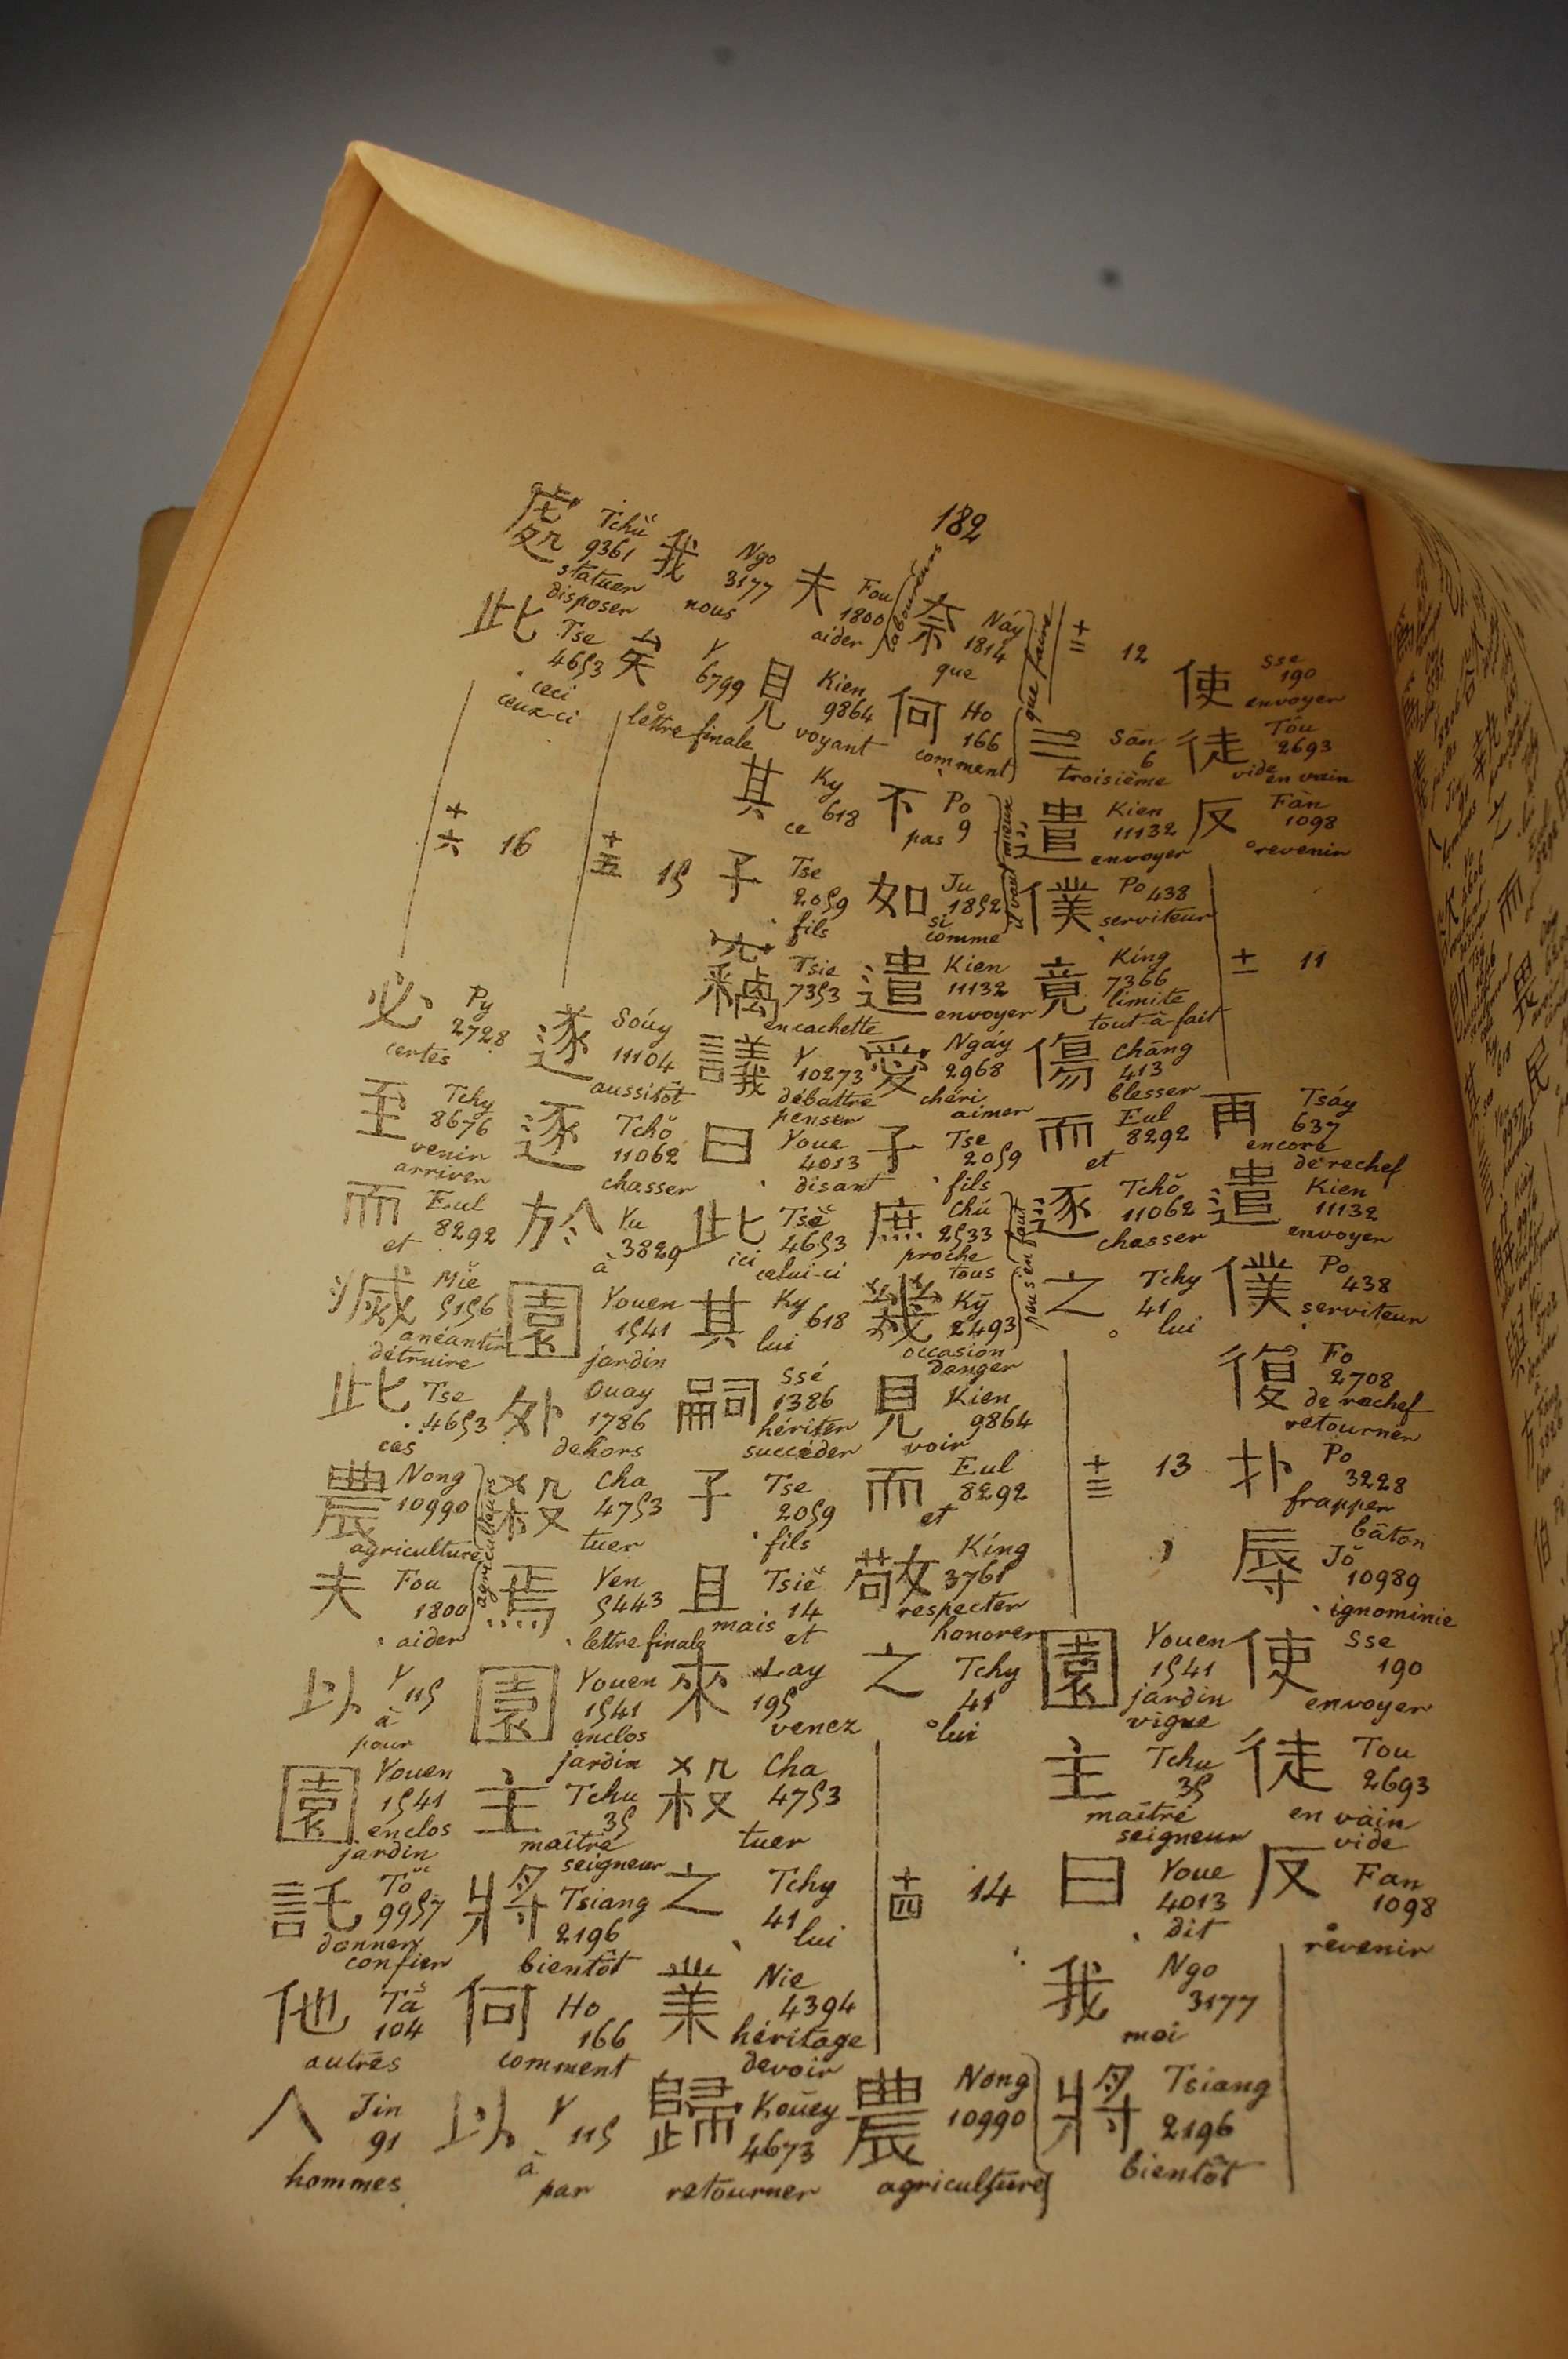 182
使 Sse 190 envoyer
徒 Tôu 2693 vide en vain
反 Fàn 1098 revenir
十一 11
再 Tsáy 637 encore de rechef
遣 Kien 11132 envoyer
僕 Po 438 serviteur
復 Fo 2708 de rechef retourner
扑 Po 3228 frapper bâton
辱 Jŏ 10989 ignominie
使 Sse 190 envoyer
徒 Tou 2693 en vain vide
反 Fan 1098 revenir
十二 12
三 Sān 6 troisième
遣 Kien 11132 envoyer
僕 Po 438 serviteur
竟 Kíng 7366 limite tout-à-fait
傷 Chāng 413 blesser
而 Eul 8292 et
逐 Tchŏ 11062 chasser
之 Tchy 41 lui
十三 13
園 Youen 1541 jardin vigne
主 Tchu 35 maître seigneur
曰 Youe 4013 dit
我 Ngo 3177 moi
將 Tsiang 2196 bientôt
奈 Náy 1814 que
何 Ho 166 comment
que faire
不 Po 9 pas
如 Ju 1852 si comme
il vaut mieux
遣 Kien 11132 envoyer
愛 Ngáy 2968 chéri aimer
子 Tse 2059 fils
庶 Chú 2533 proche tous
幾 Kỹ 2493 occasion danger
peu s'en faut
見 Kien 9864 voir
而 Eul 8292 et
敬 Kíng 3761 respecter honorer
之 Tchy 41 lui
十四 14
農 Nong 10990 agriculture
夫 Fou 1800 aider
laboureurs
見 Kien 9864 voyant
其 Ky 618 ce
子 Tse 2059 fils
竊 Tsie 7353 en cachette
議 Y 10273 débattre penser
曰 Youe 4013 disant
此 Tsě 4653 ici celui-ci
其 Ky 618 lui
嗣 Ssé 1386 hériter succéder
子 Tse 2059 fils
且 Tsiě 14 mais et
來 Lay 195 venez
殺 Cha 4753 tuer
之 Tchy 41 lui
業 Nie 4394 héritage devoir
歸 Kouēy 4673 retourner
我 Ngo 3177 nous
矣 Y 6799 lettre finale
十五 15
遂 Soúy 11104 aussitôt
逐 Tchŏ 11062 chasser
於 Yu 3829 à
園 Youen 1541 jardin
外 Ouay 1786 dehors
殺 Cha 4753 tuer
焉 Yen 5443 lettre finale
園 Youen 1541 enclos jardin
主 Tchu 35 maître seigneur
將 Tsiang 2196 bientôt
何 Ho 166 comment
以 Y 115 à par
處 Tchŭ 9361 statuer disposer
此 Tse 4653 ceci ceux-ci
十六 16
必 Py 2728 certes
至 Tchy 8676 venir arriver
而 Eul 8292 et
滅 Miě 5156 anéantir détruire
此 Tse 4653 ces
農 Nong 10990 agriculture
夫 Fou 1800 aider
agriculteurs
以 Y 115 à pour
園 Youen 1541 enclos jardin
託 Tŏ 9957 donner confier
他 Tă 104 autres
人 Jin 91 hommes